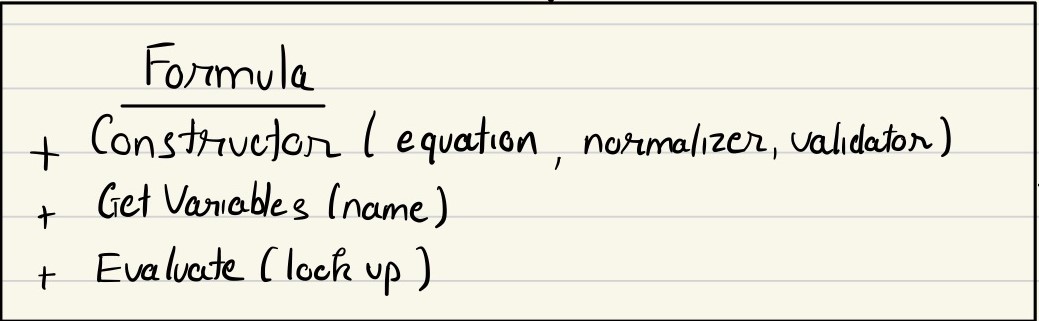 Formula
+ Constructor ( equation , normalizer, validator)
+ Get Variables (name)
+ Evaluate (look up )